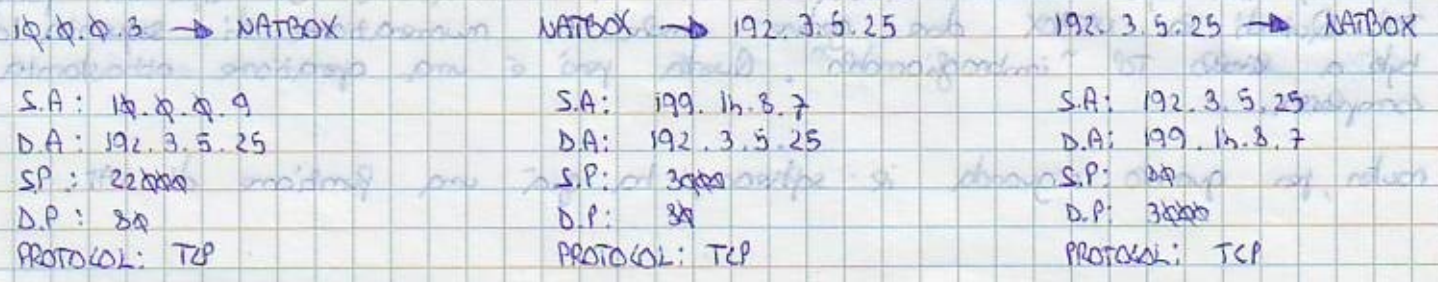 10.0.0.3 → NATBOX
S.A: 10.0.0.9
D.A: 192.3.5.25
SP: 22000
D.P: 80
PROTOCOL: TCP
NATBOX → 192.3.5.25
S.A: 199.14.8.7
D.A: 192.3.5.25
S.P: 3000
D.P: 80
PROTOCOL: TCP
192.3.5.25 → NATBOX
S.A: 192.3.5.25
D.A: 199.14.8.7
S.P: 80
D.P: 3000
PROTOCOL: TCP